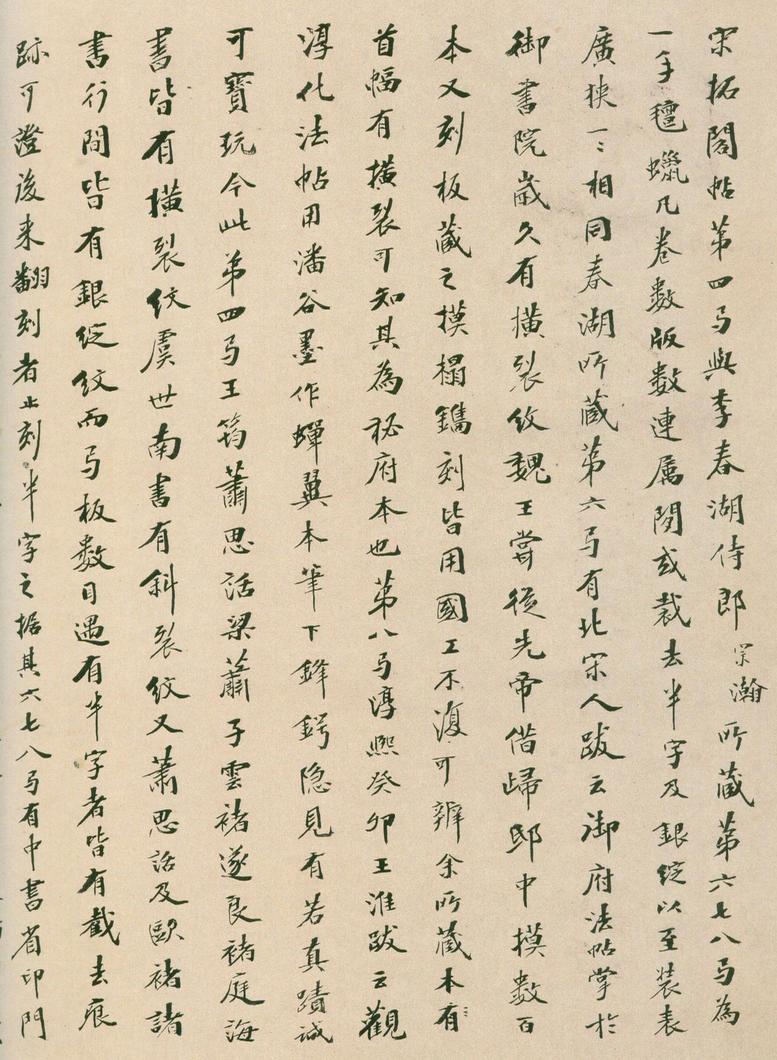 宋拓閣帖第四弓與李春湖侍郎宗瀚所藏第六七八弓為
一手氊蠟凡卷數版數連屬間或裁去半字及銀綻以至裝表
廣狹一〻相同春湖所藏第六弓有北宋人跋云御府法帖掌於
御書院歲久有橫裂紋魏王嘗從先帝借歸邸中摸數百
本又刻板藏之摸榻鐫刻皆用國工不復可辨余所藏本有〻
首幅有橫裂可知其為秘府本也第八弓淳熙癸卯王淮跋云觀
淳化法帖用潘谷墨作蟬翼本筆下鋒鍔隐見有若真蹟誠
可寶玩今此第四弓王筠蕭思話梁蕭子雲褚遂良褚庭誨
書皆有橫裂紋虞世南書有斜裂紋又蕭思話及歐褚諸
書行間皆有銀綻紋而弓板數目遇有半字者皆有截去痕
跡可證後来翻刻者止刻半字之据其六七八弓有中書省印門